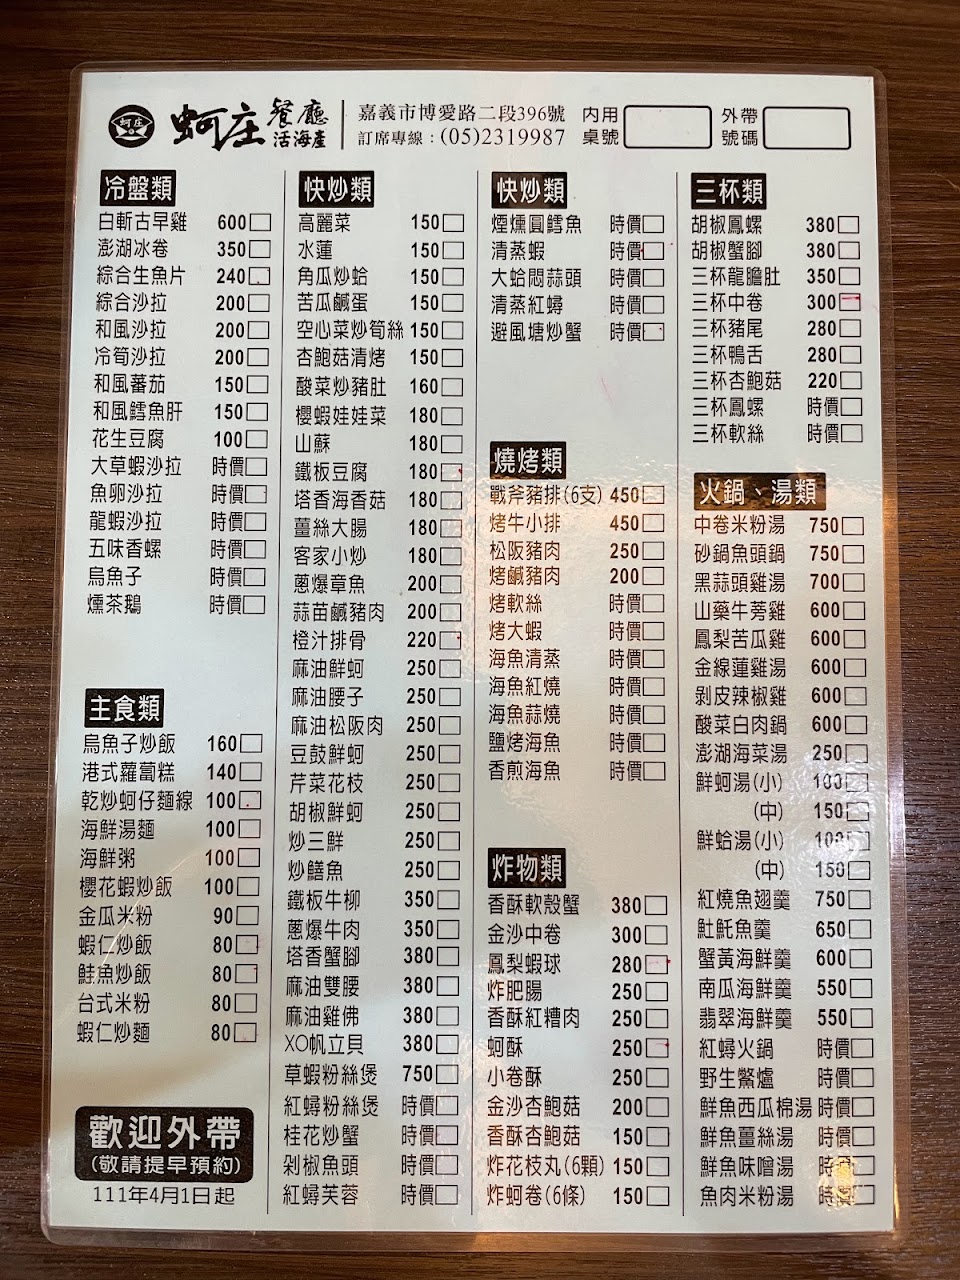 蚵庄
蚵庄 餐廳
活海產
嘉義市博愛路二段396號
訂席專線：(05)2319987
內用
桌號
外帶
號碼
冷盤類
白斬古早雞 600
澎湖冰卷 350
綜合生魚片 240
綜合沙拉 200
和風沙拉 200
冷筍沙拉 200
和風蕃茄 150
和風鱈魚肝 150
花生豆腐 100
大草蝦沙拉 時價
魚卵沙拉 時價
龍蝦沙拉 時價
五味香螺 時價
烏魚子 時價
燻茶鵝 時價
主食類
烏魚子炒飯 160
港式蘿蔔糕 140
乾炒蚵仔麵線 100
海鮮湯麵 100
海鮮粥 100
櫻花蝦炒飯 100
金瓜米粉 90
蝦仁炒飯 80
鮭魚炒飯 80
台式米粉 80
蝦仁炒麵 80
歡迎外帶
(敬請提早預約)
111年4月1日起
快炒類
高麗菜 150
水蓮 150
角瓜炒蛤 150
苦瓜鹹蛋 150
空心菜炒筍絲 150
杏鮑菇清烤 150
酸菜炒豬肚 160
櫻蝦娃娃菜 180
山蘇 180
鐵板豆腐 180
塔香海香菇 180
薑絲大腸 180
客家小炒 180
蔥爆章魚 200
蒜苗鹹豬肉 200
橙汁排骨 220
麻油鮮蚵 250
麻油腰子 250
麻油松阪肉 250
豆鼓鮮蚵 250
芹菜花枝 250
胡椒鮮蚵 250
炒三鮮 250
炒鱔魚 250
鐵板牛柳 350
蔥爆牛肉 350
塔香蟹腳 380
麻油雙腰 380
麻油雞佛 380
XO帆立貝 380
草蝦粉絲煲 750
紅蟳粉絲煲 時價
桂花炒蟹 時價
剁椒魚頭 時價
紅蟳芙蓉 時價
快炒類
煙燻圓鱈魚 時價
清蒸蝦 時價
大蛤悶蒜頭 時價
清蒸紅蟳 時價
避風塘炒蟹 時價
燒烤類
戰斧豬排(6支) 450
烤牛小排 450
松阪豬肉 250
烤鹹豬肉 200
烤軟絲 時價
烤大蝦 時價
海魚清蒸 時價
海魚紅燒 時價
海魚蒜燒 時價
鹽烤海魚 時價
香煎海魚 時價
炸物類
香酥軟殼蟹 380
金沙中卷 300
鳳梨蝦球 280
炸肥腸 250
香酥紅糟肉 250
蚵酥 250
小卷酥 250
金沙杏鮑菇 200
香酥杏鮑菇 150
炸花枝丸(6顆) 150
炸蚵卷(6條) 150
三杯類
胡椒鳳螺 380
胡椒蟹腳 380
三杯龍膽肚 350
三杯中卷 300
三杯豬尾 280
三杯鴨舌 280
三杯杏鮑菇 220
三杯鳳螺 時價
三杯軟絲 時價
火鍋、湯類
中卷米粉湯 750
砂鍋魚頭鍋 750
黑蒜頭雞湯 700
山藥牛蒡雞 600
鳳梨苦瓜雞 600
金線蓮雞湯 600
剝皮辣椒雞 600
酸菜白肉鍋 600
澎湖海菜湯 250
鮮蚵湯(小) 100
(中) 150
鮮蛤湯(小) 100
(中) 150
紅燒魚翅羹 750
𩵚魠魚羹 650
蟹黃海鮮羹 600
南瓜海鮮羹 550
翡翠海鮮羹 550
紅蟳火鍋 時價
野生鱉爐 時價
鮮魚西瓜棉湯 時價
鮮魚薑絲湯 時價
鮮魚味噌湯 時價
魚肉米粉湯 時價